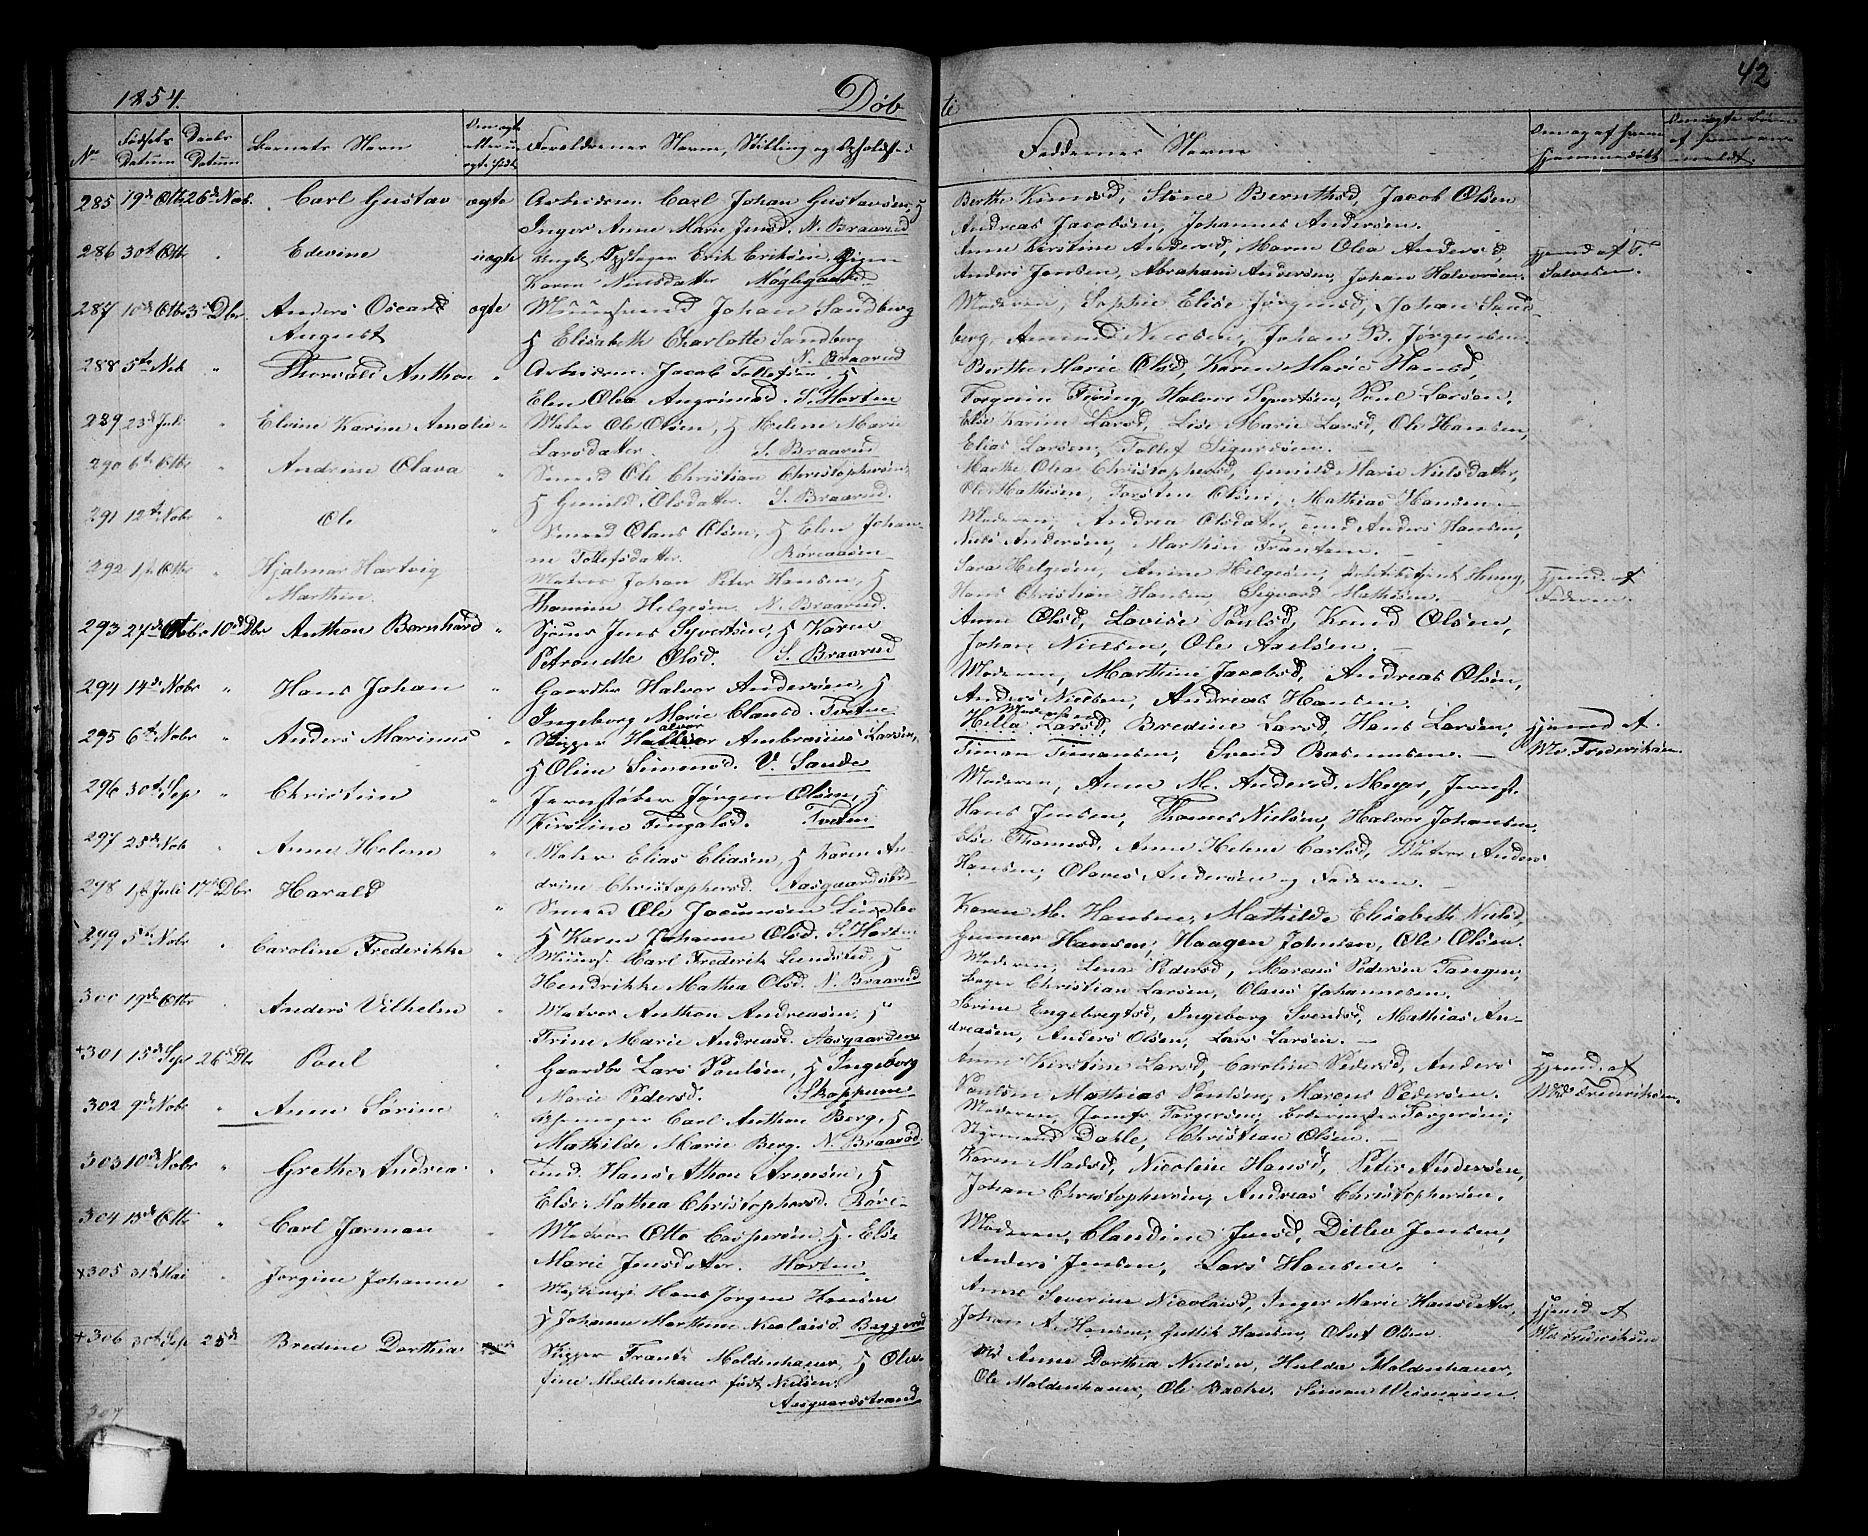 1854.
Døbte
42
No
Fødsels Datum
Daabs Datum
Barnets Navn
Om ægte eller uægte født
Forældrenes Navne, Stilling og Opholdsted
Faddernes Navne
Om og af hvem hjemmedøbt
285 19de Otbr 26de Nobr. Carl Gustav ægte Arbeidsm. Carl Johan Gustavsen, H
Inger Anne Marie Jensd. N. Braarud
Berthe Knudsd, Stine Bernthsd, Jacob Olsen
Andreas Jacobsen, Johannes Andersen.
286 30te Otbr " Edvine uægte Ungk. Erik Eriksen, Pigen
Karen Nielsdatter
Anne Kirstine Andersd, Maren Olea Andersd,
Anders Jensen, Abraham Andersen, Johan Halvorsen.
Hjemd af T. Salvesen.
287 10de Otbr 3de Dbr. Anders Oscar August ægte Johan Sandberg
H Elisabeth Charlotte Sandberg N. Braarud
Moderen, Sophie Elise Jørgensd, Johan Sand-
berg, Amund Nielsen, Johan B. Jørgensen.
288 5te Nob " Thorvald Anthon " Arbeidsm. Jacob Tollefsen H
Elen Olea Angrimsd. S. Horten
Berthe Marie Olsd, Karen Marie Hansd,
Torgrim Firing, Halvor Syvertsen, Poul Larsen.
289 23de Juli " Elvine Karine Amalie " Maler Ole Olsen, H Helene Marie
Larsdatter. S. Braarud
Else Karine Larsd, Lise Marie Larsd, Ole Hansen,
Elias Larsen, Tollef Sigurdsen.
290 6te Otbr " Andrine Olava Smed Ole Christian Christophersen
H Gunild Olsdatter. S. Braarud.
Marthe Olea Christophersd, Gunild Marie Nielsdatter,
Ole Mathisen, Torsten Olsen, Mathias Hansen.
291 12te Nobr " Ole " Smed Olaus Olsen, H Elen Johan-
ne Tollefsdatter. Røreaasen
Moderen, Andrea Olsdatter, Anders Hansen,
Nils Andersen, Marthin Frantsen.
292 1ste Otbr " Hjalmar Hartvig Marthin. Matros Johan Peter Hansen, H
Thomine Helgesen. N. Braarud.
Sara Helgesen, Anine Helgesen,
Hans Christian Hansen, Sigvard Mathisen.
Hjemd. af Faderen.
293 27de Otbr 10de Dbr Anthon Bernhard " Jens Syvertsen, H Karen
Petronelle Olsd. S. Braarud
Anne Olsd, Lovise Poulsd, Knud Olsen,
Johan Nielsen, Ole Axelsen.
294 14de Nobr " Hans Johan " Gaardbr Halvor Andersen, H
Ingeborg Marie Clausd. Tveten
Moderen, Marthine Jacobsd, Andreas Olsen,
Anders Nielsen, Andreas Hansen.
295 6te Nobr " Anders Marinus " Skipper Halvor Ambrosius Larsen,
H Oline Simensd. V. Sande
Moderen
Hella Larsd, Bredine Larsd, Hans Larsen,
Timan Timansen, Svend Rasmussen.
Hjemd af Md. Frederiksen.
296 30te Sep " Christine " Jernstøber Jørgen Olsen, H
Kirstine Fingalsd. Tveten
Moderen, Anne M. Andersd. Meyer,
Hans Jensen, Thomes Nielsen, Halvor Johansen.
297 25de Nob " Anne Helene " Maler Elias Eliasen, H Karen An-
drine Christophersd. Aasgaardstrd
Else Thomesd, Anne Helene Carlsd, Matros Anders
Hansen, Olaves Andersen og Faderen.
298 1ste Juli 17de Dbr Harald " Smed Ole
H Karen Johanne Olsd. S. Horten
Karen M. Hansen, Mathilde Elisabeth Nielsd,
Gunner Hansen, Haagen Johnsen, Ole Olsen.
299 5te Nobr " Caroline Frederikke " Carl Frederik Lundsted, H
Hendrikke Mathea Olsd. N. Braarud
Moderen, Lena Pedersd, Marcus Pedersen Tangen,
Bager Christian Larsen, Olaus Johannesen.
300 19de Otbr Anders Vilhelm " Matros Anthon Andreasen, H
Trine Marie Andreasd. Aasgaarden
Sørine Engebregtsd, Ingeborg Svendsd, Mathias An-
dreasen, Anders Olsen, Lars Larsen.
+301 15de Sept 26de Dbr Poul " Gaardbr Lars Poulsen, H Ingeborg
Marie Pedersd. Skoppum
Anne Kirstine Larsd, Caroline Pedersd, Anders
Poulsen Mathias Poulsen, Marcus Pedersen.
Hjemd. af Md Frederiksen.
302 9de Nobr " Anne Sørine " Carl Anthon Berg, H
Mathilde Marie Berg. N. Braarød.
Moderen, Jomfr Torgersen, Torgersen,
Styrmand Dahle, Christian Olsen.
303 10de Nobr " Grethe Andrea " Hans Athon H
Else Mathea Christophersd. Røre
Karen Madsd, Nicoline Hansd, Peter Andersen,
Johan Christophersen, Andreas Christophersen.
304 15de Otbr " Carl Jarman " Matros Otto Caspersen, H. Else
Marie Jensdatter. Horten
Moderen, Claudine Jensd, Ditlev Jensen,
Anders Jensen, Lars Hansen.
x305 31te Mai " Jørgine Johanne " Hans Jørgen Hansen
H Johanne Marthine Nicolaisd. Baggerud
Anne Severine Nicolaisd, Inger Marie Hansdatter,
Johan A. Hansen, Hansen, Oluf Olsen
Hjemd. af Md Frederiksen
+306 30te Sep 25de Bredine Dorthea Skipper Frants Moldenhauer, H Olu-
fine Moldenhauer født Nielsen. Aasgaardstrand
Md Anne Dorthea Nielsen, Hulda Moldenhauer,
Ole Moldenhauer, Ole Bache, Simon Wismann.
307